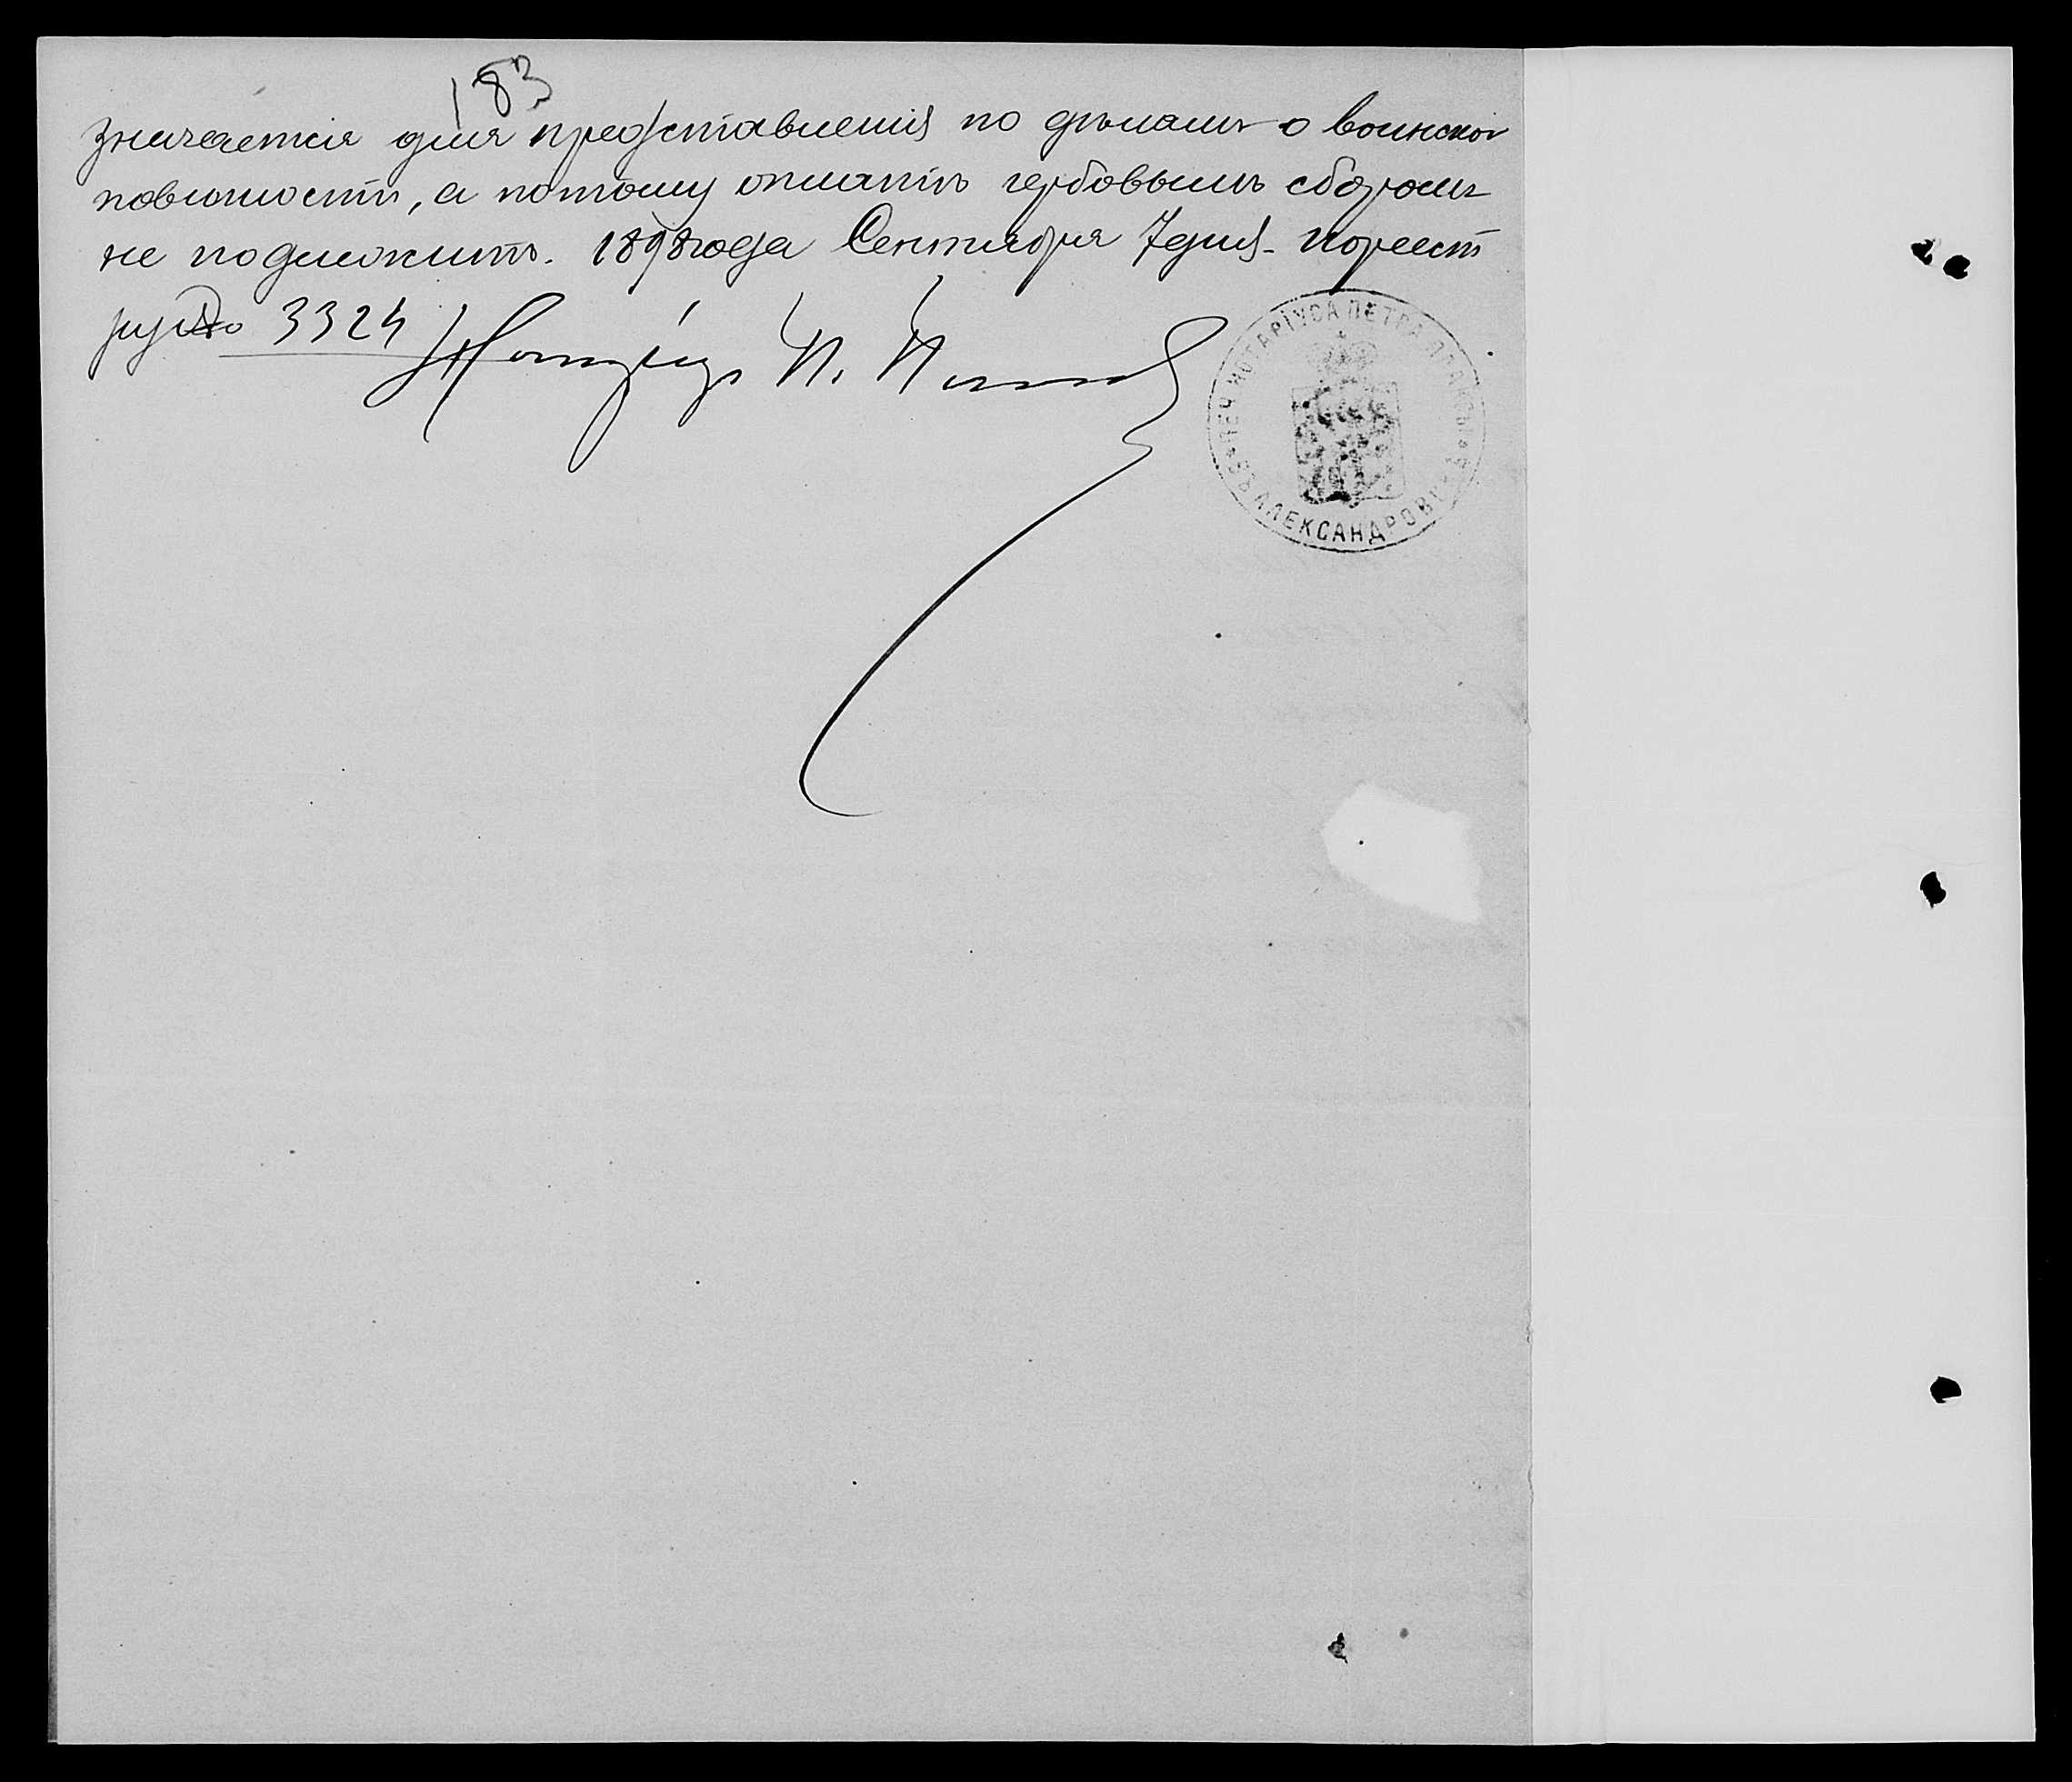 183
значается для представленія по дѣламъ о воинской
повинности, а потому оплатѣ гербовымъ сборомъ
не подлежитъ. 1898 года Сентября 7 дня. По реест
ру № 3324 Нотаріусъ П.
ПЕЧ. НОТАРІУСА ПЕТРА
ВЪ АЛЕКСАНДРОВСКѢ